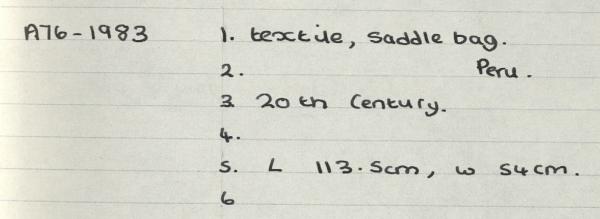 A76-1983 1. textile, saddle bag.
2. Peru.
3 20th Century.
4.
5. L 113.5cm, w 54cm.
6